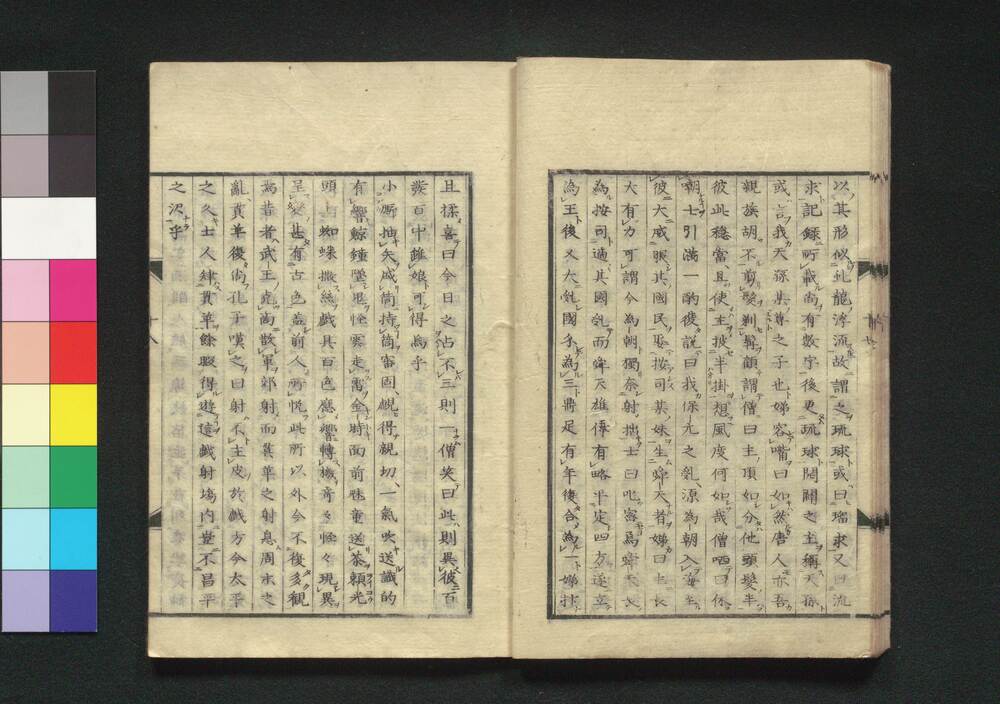 以其形似虬龍浮流故謂之琉球或曰瑠求又曰流
求記錄所載尚有數字後更琉球開闢之主稱天孫
或言我天孫某尊之子也娣容嘴曰如然唐人亦吾
親族胡不剪髮剃髯顧謂僧曰主頂如分他頭髮半
彼此穩當且使主披半掛想風度何如哉僧哂曰休
朝士引滿一酌後說曰我保元之乱源為朝入海至
彼大威服其國民娶按司某妹生舜天者娣曰主長
大有力可謂今為朝獨奈射拙士曰叱富為舜天長
為按司適其國乱而舜天雄偉有略平定四方遂立
為王後又大乱國分為三鼎足有年後合為一娣抃
且揉喜曰今日之占不三則一僧笑曰此則異彼百
發百中雖娘可得為乎
小嬌抽矢威筒持筒審固覷得親切一氣吹送識的
有響鯨鐘墜思怪雲走霄金時面前魅童送茶賴光
頭上蜘蛛撒絲戲具百色應響轉機奇々恠々現異
呈變甚有古色盖前人所悅此所以外今不復多觀
焉昔者武王克商散軍郊射而貫革之射息周末之
亂貫革復尚孔子嘆之曰射不主皮故戲方今太平
之久士人肄貫革餘暇得遊這戲射塲内豈不昌平
之沢乎